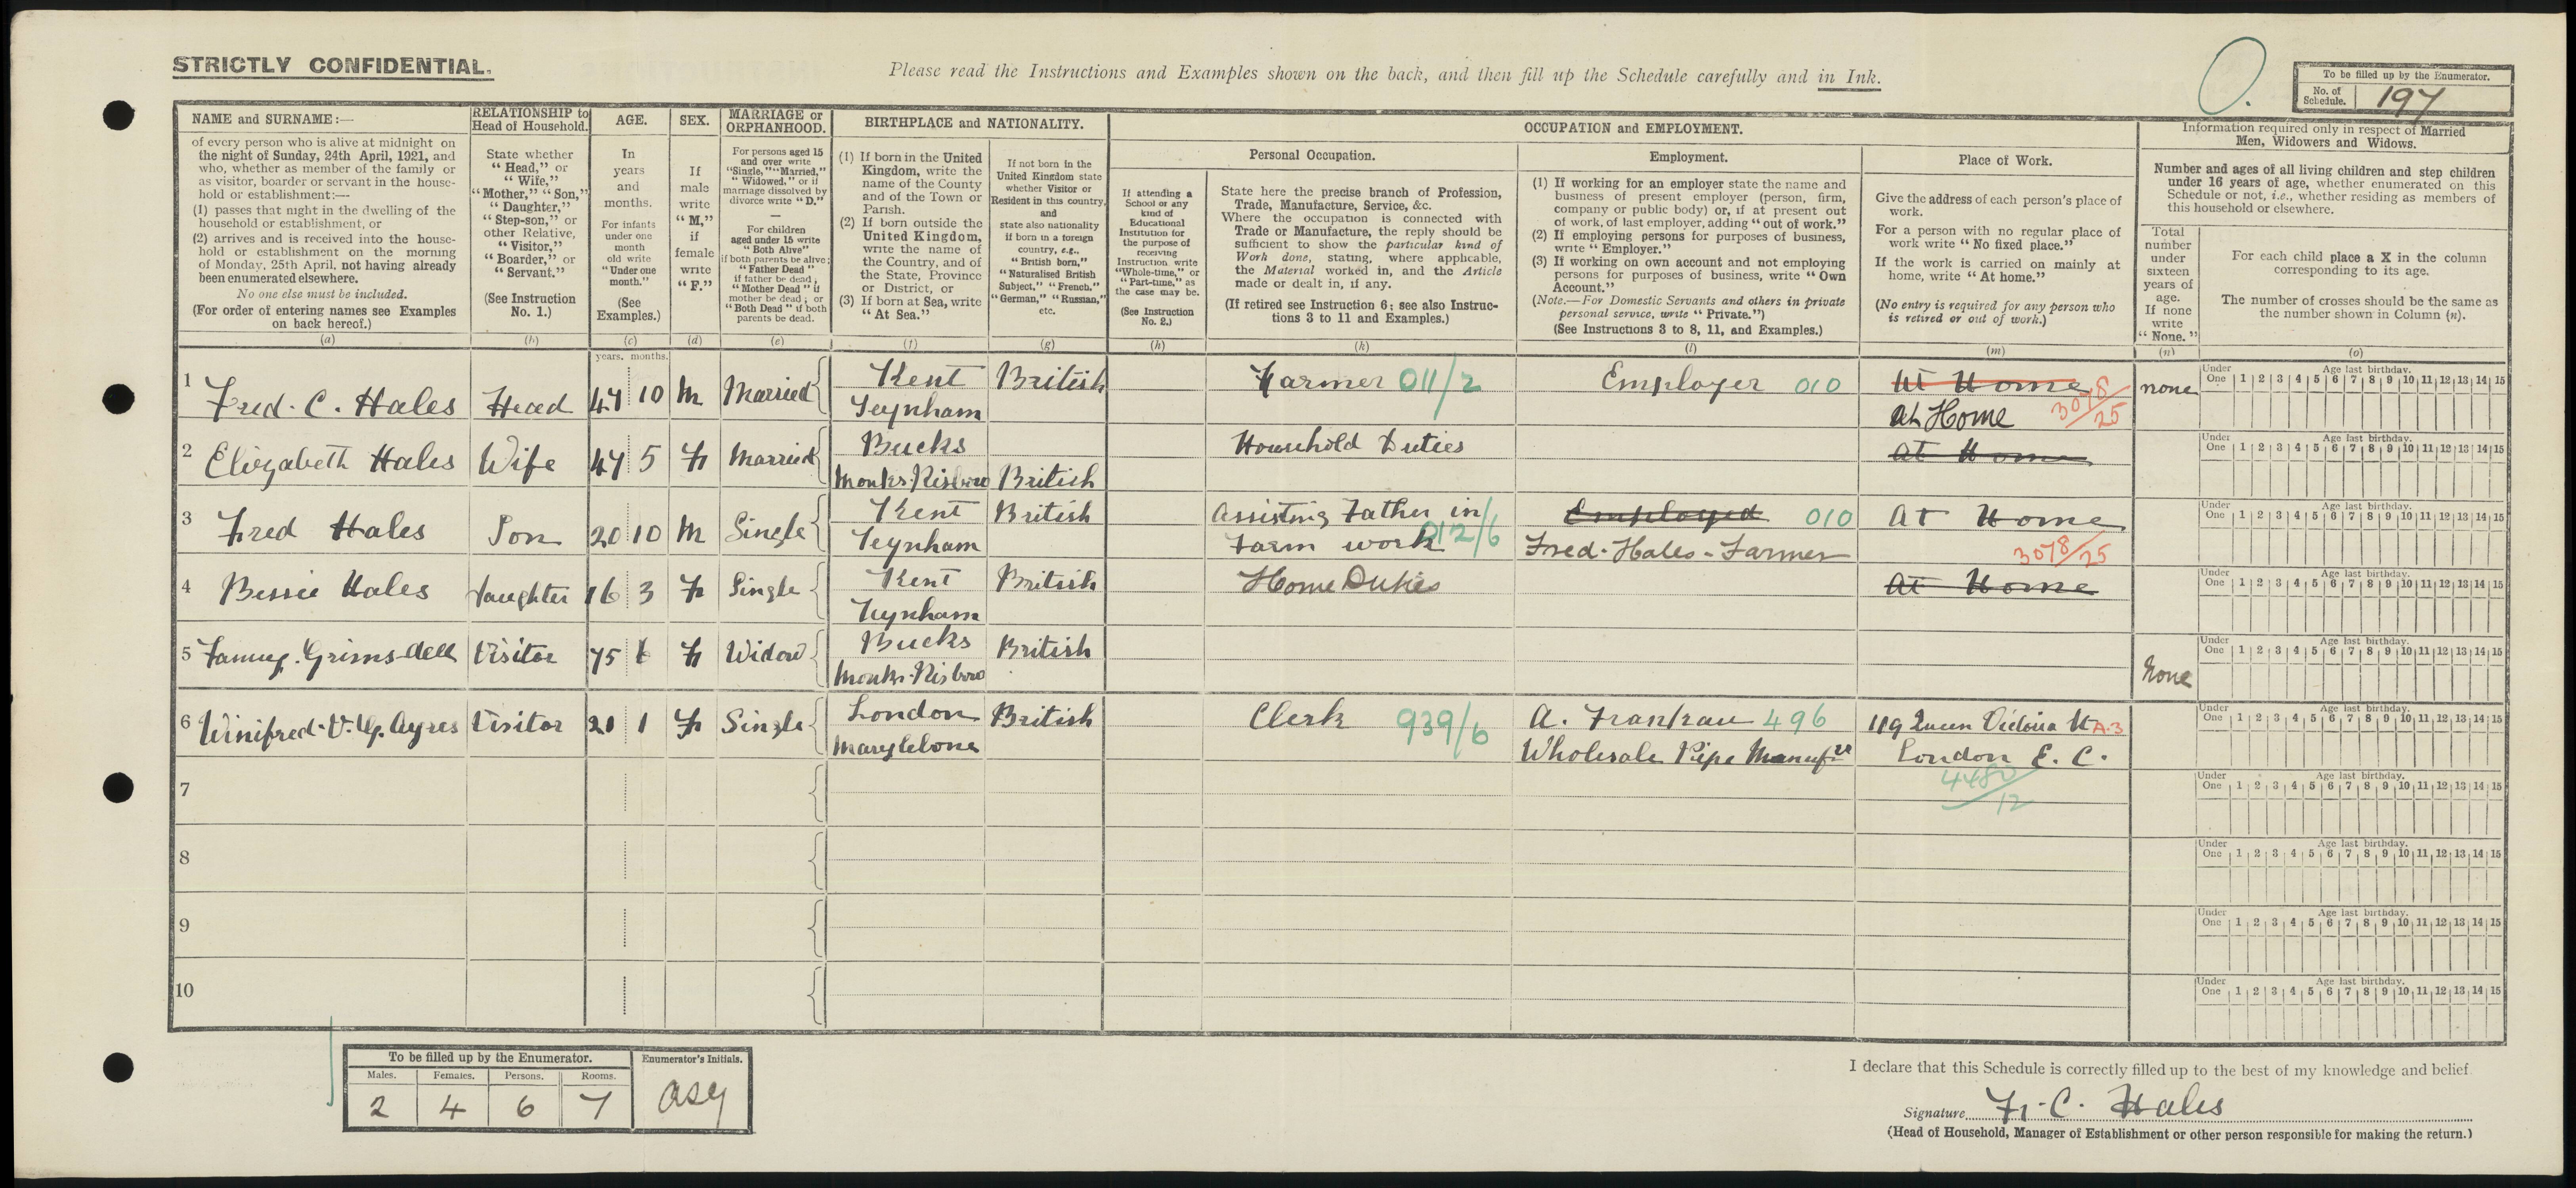 STRICTLY CONFIDENTIAL.
Please read the Instructions and Examples shown on the back, and then fill up the Schedule carefully and in Ink.
To be filled up by the Enumerator.
No. of Schedule. 197
NAME and SURNAME :—
of every person who is alive at midnight on
the night of Sunday, 24th April, 1921, and
who, whether as member of the family or
as visitor, boarder or servant in the house-
hold or establishment:—
(1) passes that night in the dwelling of the
household or establishment, or
(2) arrives and is received into the house-
hold or establishment on the morning
of Monday, 25th April, not having already
been enumerated elsewhere.
No one else must be included.
(For order of entering names see Examples
on back hereof.)
(a)
RELATIONSHIP to
Head of Household.
State whether
"Head," or
"Wife,"
"Mother," "Son,"
"Daughter,"
"Step-son," or
other Relative,
"Visitor,"
"Boarder," or
"Servant."
(See Instruction
No. 1.)
(b)
AGE.
In
years
and
months.
For infants
under one
month
old write
"Under one
month."
(See
Examples.)
(c)
years. months.
SEX.
If
male
write
"M,"
if
female
write
"F."
(d)
MARRIAGE or
ORPHANHOOD.
For persons aged 15
and over write
"Single," "Married,"
"Widowed," or if
marriage dissolved by
divorce write "D."
—
For children
aged under 15 write
"Both Alive"
if both parents be alive;
"Father Dead"
if father be dead;
"Mother Dead" if
mother be dead; or
"Both Dead" if both
parents be dead.
(e)
BIRTHPLACE and NATIONALITY.
(1) If born in the United
Kingdom, write the
name of the County
and of the Town or
Parish.
(2) If born outside the
United Kingdom,
write the name of
the Country, and of
the State, Province
or District, or
(3) If born at Sea, write
"At Sea."
(f)
If not born in the
United Kingdom state
whether Visitor or
Resident in this country,
and
state also nationality
if born in a foreign
country, e.g.,
"British born,"
"Naturalised British
Subject," "French,"
"German," "Russian,"
etc.
(g)
OCCUPATION and EMPLOYMENT.
If attending a
School or any
kind of
Educational
Institution for
the purpose of
receiving
Instruction write
"Whole-time," or
"Part-time," as
the case may be.
(See Instruction
No. 2.)
(h)
Personal Occupation.
State here the precise branch of Profession,
Trade, Manufacture, Service, &c.
Where the occupation is connected with
Trade or Manufacture, the reply should be
sufficient to show the particular kind of
Work done, stating, where applicable,
the Material worked in, and the Article
made or dealt in, if any.
(If retired see Instruction 6; see also Instruc-
tions 3 to 11 and Examples.)
(k)
Employment.
(1) If working for an employer state the name and
business of present employer (person, firm,
company or public body) or, if at present out
of work, of last employer, adding "out of work."
(2) If employing persons for purposes of business,
write "Employer."
(3) If working on own account and not employing
persons for purposes of business, write "Own
Account."
(Note.—For Domestic Servants and others in private
personal service, write "Private.")
(See Instructions 3 to 8, 11, and Examples.)
(l)
Place of Work.
Give the address of each person's place of
work.
For a person with no regular place of
work write "No fixed place."
If the work is carried on mainly at
home, write "At home."
(No entry is required for any person who
is retired or out of work.)
(m)
Information required only in respect of Married
Men, Widowers and Widows.
Number and ages of all living children and step children
under 16 years of age, whether enumerated on this
Schedule or not, i.e., whether residing as members of
this household or elsewhere.
Total
number
under
sixteen
years of
age.
If none
write
"None."
(n)
For each child place a X in the column
corresponding to its age.
The number of crosses should be the same as
the number shown in Column (n).
(o)
1 Fred. C. Hales Head 47 10 M Married Kent Teynham British Farmer 011/2 Employer 010 At Home At Home 3078/25 none
Under One Age last birthday. 1 2 3 4 5 6 7 8 9 10 11 12 13 14 15
2 Elizabeth Hales Wife 47 5 F Married Bucks Monks Risboro British Household Duties At Home
Under One Age last birthday. 1 2 3 4 5 6 7 8 9 10 11 12 13 14 15
3 Fred Hales Son 20 10 M Single Kent Teynham British Assisting Father in Farm work 012/6 Employed 010 Fred. Hales - Farmer At Home 3078/25
Under One Age last birthday. 1 2 3 4 5 6 7 8 9 10 11 12 13 14 15
4 Bessie Hales daughter 16 3 F Single Kent Teynham British Home Duties At Home
Under One Age last birthday. 1 2 3 4 5 6 7 8 9 10 11 12 13 14 15
5 Fanny. Grimsdell Visitor 75 F Widow Bucks Monks Risboro British None
Under One Age last birthday. 1 2 3 4 5 6 7 8 9 10 11 12 13 14 15
6 Winifred. Ayres Visitor 21 1 F Single London Marylebone British Clerk 939/6 A. Frankau 496 Wholesale Pipe Manufrs 119 Queen Victoria St A.3 London E. C. 4480/12
Under One Age last birthday. 1 2 3 4 5 6 7 8 9 10 11 12 13 14 15
7
Under One Age last birthday. 1 2 3 4 5 6 7 8 9 10 11 12 13 14 15
8
Under One Age last birthday. 1 2 3 4 5 6 7 8 9 10 11 12 13 14 15
9
Under One Age last birthday. 1 2 3 4 5 6 7 8 9 10 11 12 13 14 15
10
Under One Age last birthday. 1 2 3 4 5 6 7 8 9 10 11 12 13 14 15
To be filled up by the Enumerator. Enumerator's Initials.
Males. Females. Persons. Rooms.
2 4 6 7
I declare that this Schedule is correctly filled up to the best of my knowledge and belief
Signature F. C. Hales
(Head of Household, Manager of Establishment or other person responsible for making the return.)